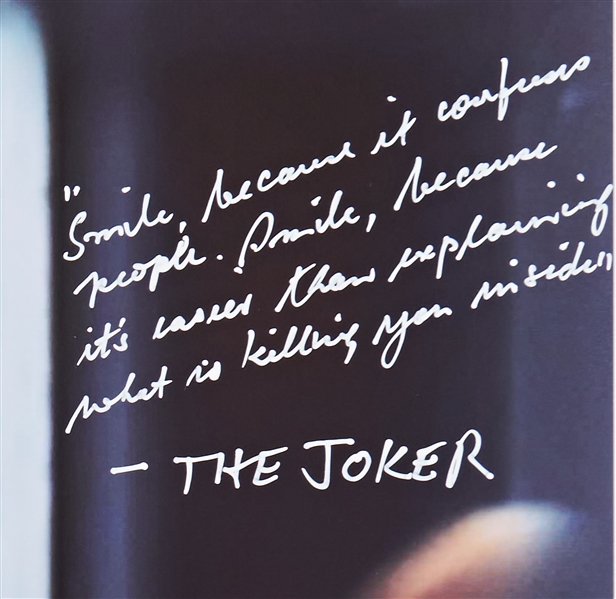 "Smile, because it confuses
people. Smile, because
it's easier than explaining
what is killing you inside"
- THE JOKER